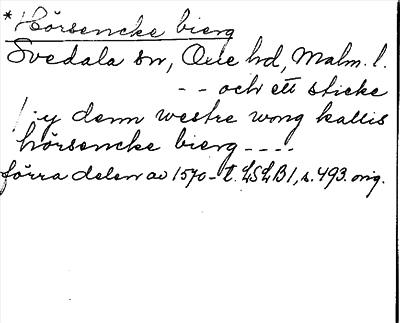 *Hörsencke bierg
Svedala sn, Oxie hd, Malm. l.
- - och ett sticke
/ y denn westre wong kallis
hörsencke bierg - - - -
förra delen av 1570-t. LSLB 1, s. 493. orig.